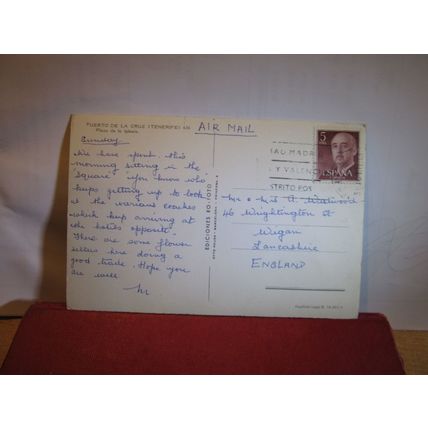 PUERTO DE LA CRUZ (TENERIFE)
Plaza de la Iglesia
AIR MAIL
Sunday
We have spent this
morning sitting in the
"Square" "you know who"
keeps getting up to look
at the various coaches
which keep arriving at
the hotels opposite.
There are some flower
sellers here doing a
good trade. Hope you
are well
EDICIONES RO-FOTO
5
ESPAÑA
Y VALEN
Mr & Mrs A.
46 Wrightington St
Wigan
Lancashire
ENGLAND